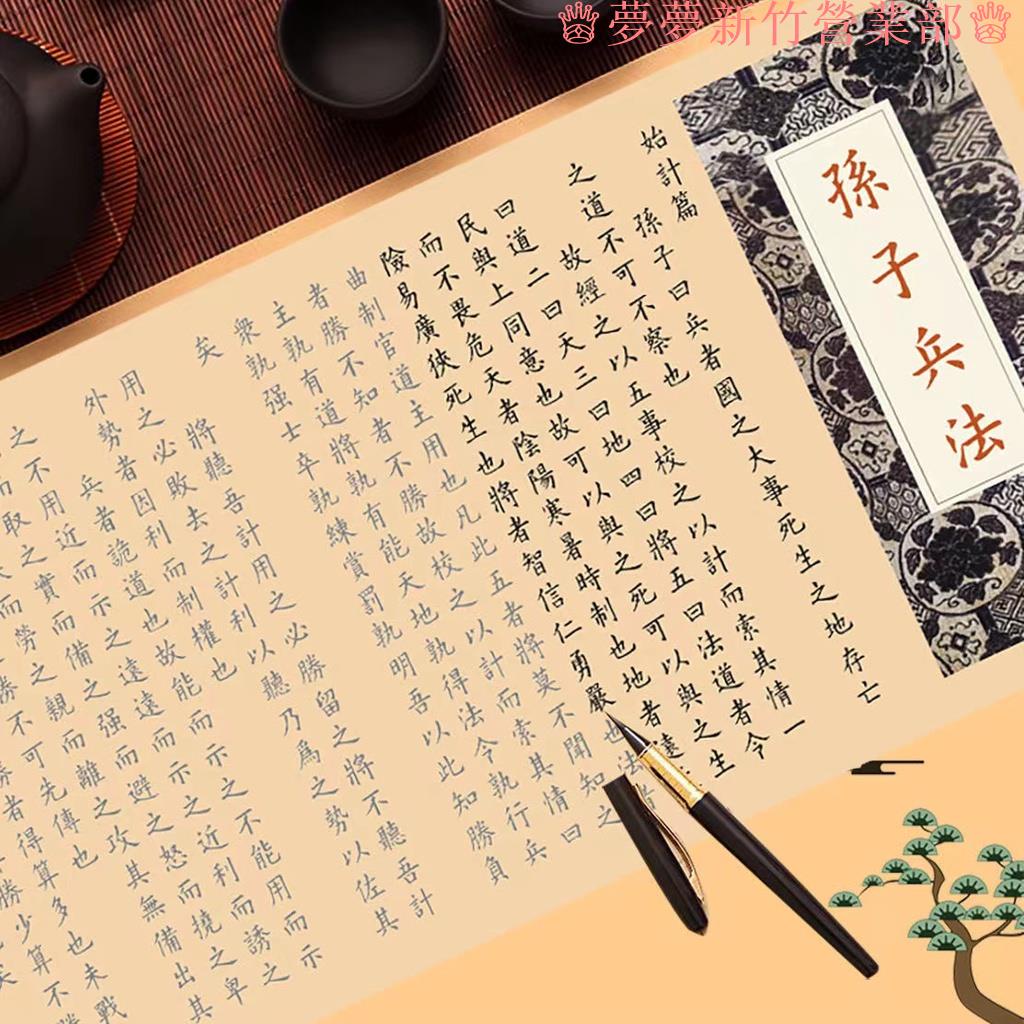 夢夢新竹營業部
孫子兵法
始計篇
孫子曰兵者國之大事死生之地存亡
之道不可不察也
故經之以五事校之以計而索其情一
曰道二曰天三曰地四曰將五曰法道者令
民與上同意也故可以與之死可以與之生
而不畏危天者陰陽寒暑時制也地者遠
險易廣狹死生也將者智信仁勇嚴也法者
曲制官道主用也凡此五者將莫不聞知之
者勝不知者不勝故校之以計而索其情曰
主孰有道將孰有能天地孰得法令孰行兵
衆孰强士卒孰練賞罰孰明吾以此知勝負
矣
將聽吾計用之必勝留之將不聽吾計
用之必敗去之計利以聽乃爲之勢以佐其
外勢者因利而制權也
兵者詭道也故能而示之不能用而示
之不用近而示之遠遠而示之近利而誘之
而取之實而備之强而避之怒而撓之卑
而勞之親而離之攻其無備出其
勝不可先傳也
者得算多也未戰
勝少算不勝